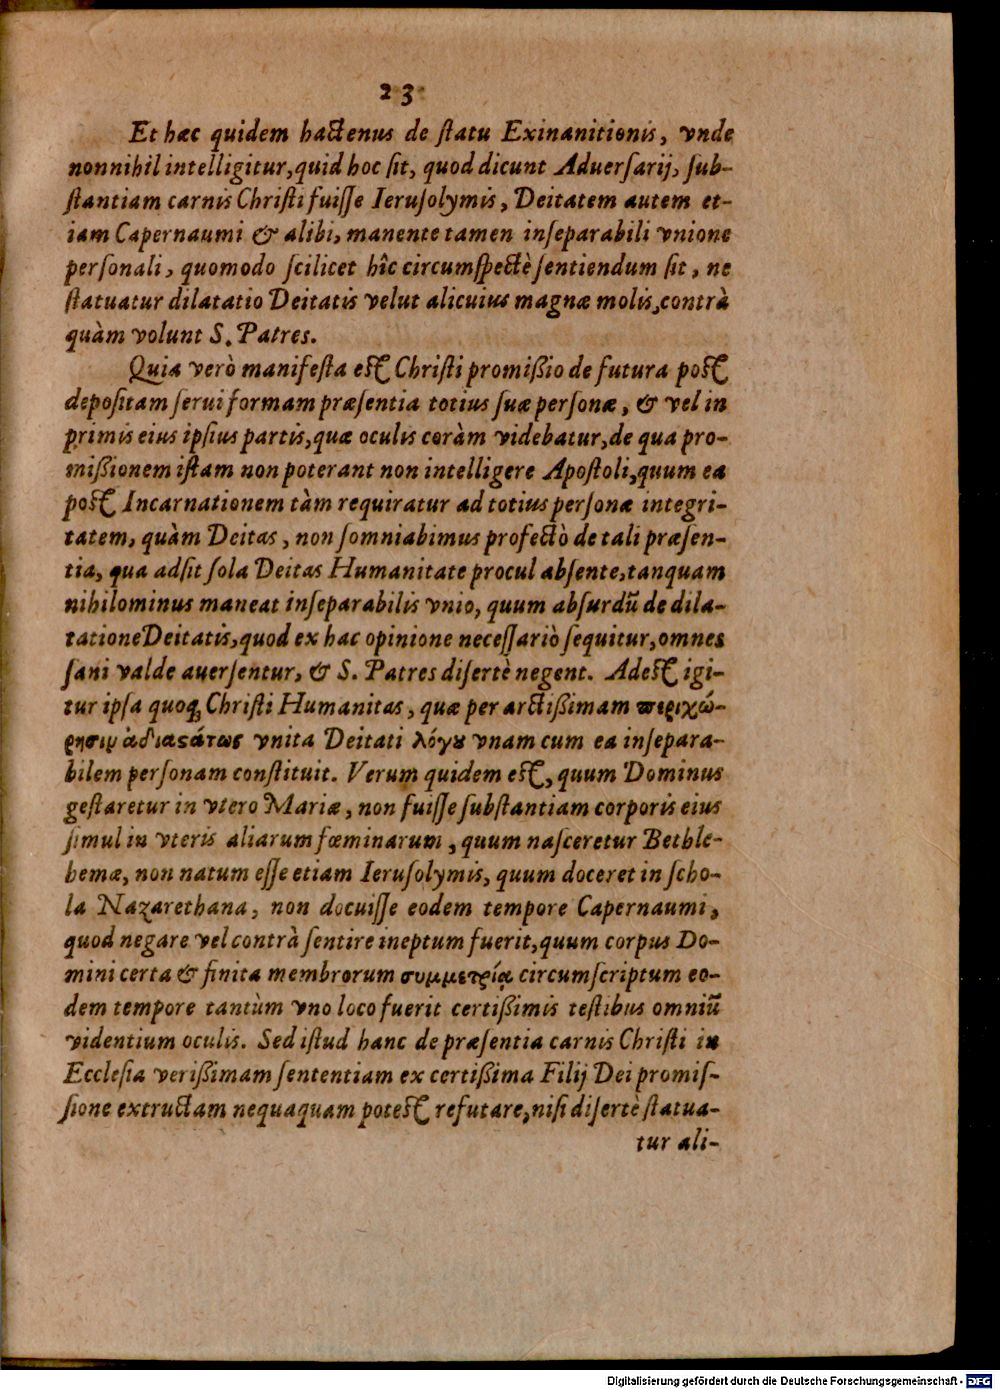 23
Et hæc quidem hactenus de ſtatu Exinanitionis, vnde
nonnihil intelligitur, quid hoc ſit, quod dicunt Aduerſarij, ſub-
ſtantiam carnis Chriſti fuiſſe Ieruſolymis, Deitatem autem et-
iam Capernaumi & alibi, manente tamen inſeparabili vnione
perſonali, quomodo ſcilicet hîc circumſpectè ſentiendum ſit, ne
ſtatuatur dilatatio Deitatis velut alicuius magnæ molis, contrà
quàm volunt S. Patres.
Quia verò manifeſta eſt Chriſti promißio de futura poſt
depoſitam ſerui formam præſentia totius ſuæ perſonæ, & vel in
primis eius ipſius partis, quæ oculis coràm videbatur, de qua pro-
mißionem iſtam non poterant non intelligere Apoſtoli, quum ea
poſt Incarnationem tàm requiratur ad totius perſonæ integri-
tatem, quàm Deitas, non ſomniabimus profectò de tali præſen-
tia, qua adſit ſola Deitas Humanitate procul abſente, tanquam
nihilominus maneat inſeparabilis vnio, quum abſurdũ de dila-
tatione Deitatis, quod ex hac opinione neceſſariò ſequitur, omnes
ſani valde auerſentur, & S. Patres diſertè negent. Adeſt igi-
tur ipſa quoq; Chriſti Humanitas, quæ per arctißimam περιχώ-
ρησιν ἀδιαςάτως vnita Deitati λόγȣ vnam cum ea inſepara-
bilem perſonam conſtituit. Verum quidem eſt, quum Dominus
geſtaretur in vtero Mariæ, non fuiſſe ſubſtantiam corporis eius
ſimul in vteris aliarum fœminarum, quum naſceretur Bethle-
hemæ, non natum eſſe etiam Ieruſolymis, quum doceret in ſcho-
la Nazarethana, non docuiſſe eodem tempore Capernaumi,
quod negare vel contrà ſentire ineptum fuerit, quum corpus Do-
mini certa & finita membrorum συμμετρίᾳ circumſcriptum eo-
dem tempore tantùm vno loco fuerit certißimis teſtibus omniũ
videntium oculis. Sed iſtud hanc de præſentia carnis Chriſti in
Eccleſia verißimam ſententiam ex certißima Filij Dei promiſ-
ſione extructam nequaquam poteſt refutare, niſi diſertè ſtatua-
tur ali-
Digitalisierung gefördert durch die Deutsche Forschungsgemeinschaft - DFG